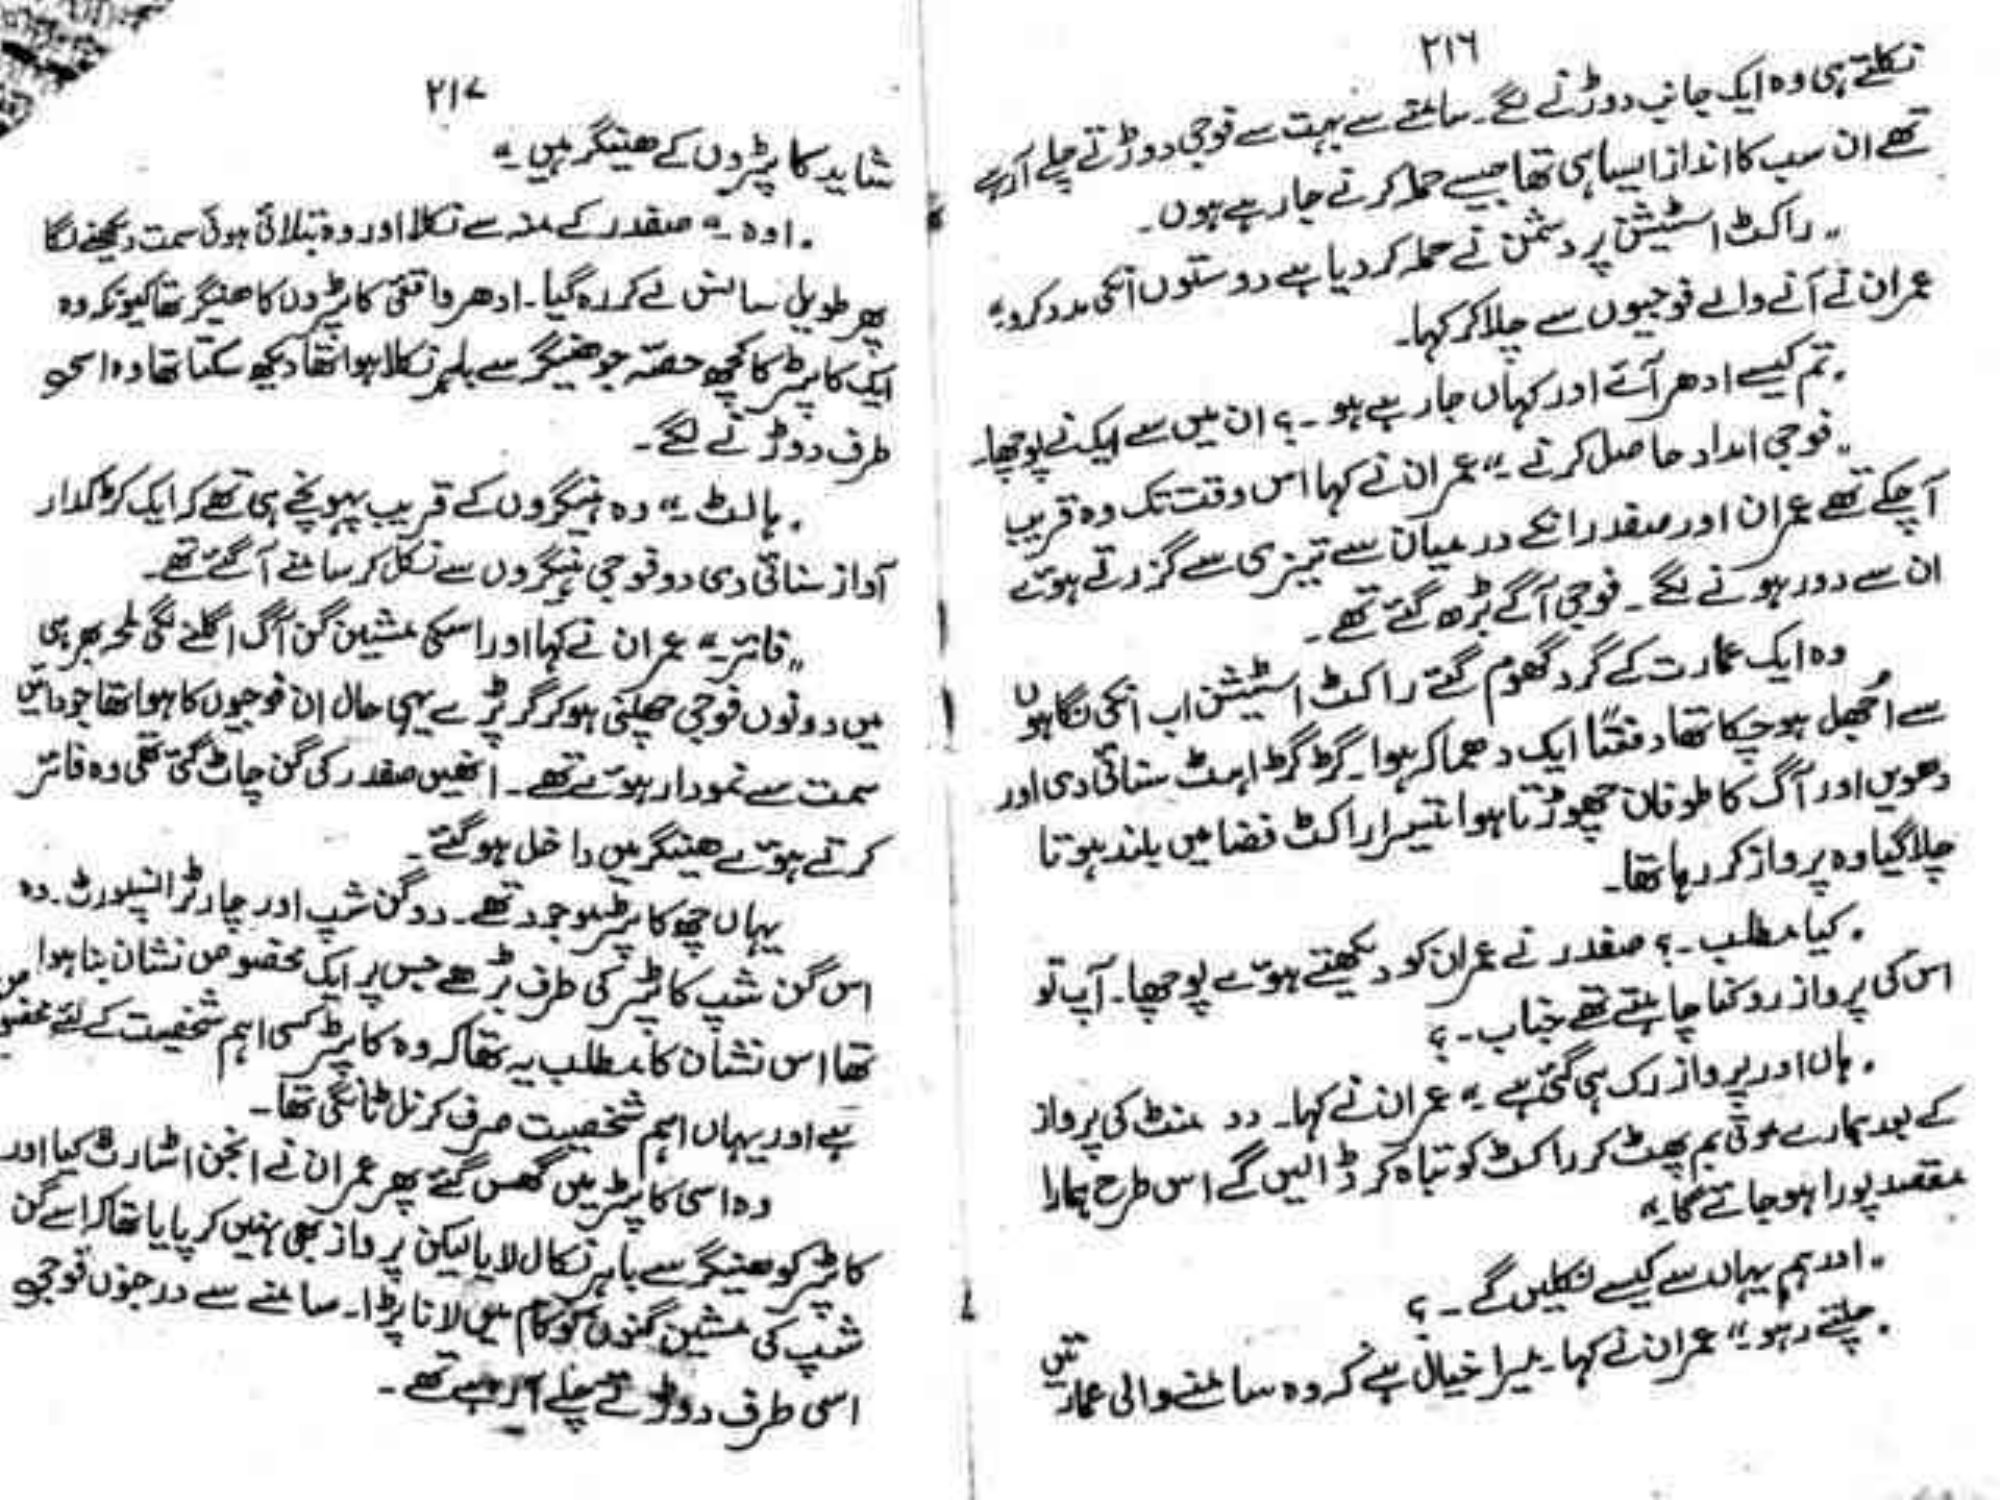 ۲۱۶
نکلتے ہی وہ ایک جانب دوڑنے لگے۔ سامنے سے بہت سے فوجی دوڑتے چلے آرہے
تھے ان سب کا انداز ایسا ہی تھا جیسے حملہ کرنے جارہے ہوں۔
"راکٹ اسٹیشن پر دشمن نے حملہ کر دیا ہے دوستوں انکی مدد کرو۔"
عمران نے آنے والے فوجیوں سے چلا کر کہا۔
"تم کیسے ادھر آئے اور کہاں جارہے ہو۔؟ ان میں سے ایک نے پوچھا۔
"فوجی امداد حاصل کرنے۔" عمران نے کہا اس وقت تک وہ قریب
آچکے تھے عمران اور صفدر انکے درمیان سے تیزی سے گزرتے ہوئے
ان سے دور ہونے لگے۔ فوجی آگے بڑھ گئے تھے۔
وہ ایک عمارت کے گرد گھوم گئے راکٹ اسٹیشن اب انکی نگاہوں
سے اُجھل ہوچکا تھا دفعتاً ایک دھماکہ ہوا۔ گڑگڑاہٹ سنائی دی اور
دھویں اور آگ کا طوفان چھوڑتا ہوا تیسرا راکٹ فضا میں بلند ہوتا
چلا گیا وہ پرواز کر رہا تھا۔
"کیا مطلب۔؟ صفدر نے عمران کو دیکھتے ہوئے پوچھا۔ آپ تو
اس کی پرواز روکنا چاہتے تھے جناب۔؟
"ہاں اور پرواز رک ہی گئی ہے۔" عمران نے کہا۔ دو منٹ کی پرواز
کے بعد ہمارے موتی بم پھٹ کر راکٹ کو تباہ کر ڈالیں گے اس طرح ہمارا
مقصد پورا ہو جائے گا۔"
"اور ہم یہاں سے کیسے نکلیں گے۔؟
"چلتے رہو۔" عمران نے کہا۔ میرا خیال ہے کہ وہ سامنے والی عمارتیں
۲۱۷
شاید کاپٹروں کے ھینگر ہیں۔"
"اوہ۔" صفدر کے منہ سے نکلا اور وہ بتلائی ہوئی سمت دیکھنے لگا
پھر طویل سانس لے کر رہ گیا۔ ادھر واقعی کاپٹروں کا ھینگر تھا کیونکہ وہ
ایک کاپٹر کا کچھ حصّہ جو ھینگر سے باہر نکلا ہوا تھا دیکھ سکتا تھا وہ اسی
طرف دوڑنے لگے۔
"ہالٹ۔" وہ ہینگروں کے قریب پہونچے ہی تھے کہ ایک کڑکدار
آواز سنائی دی دو فوجی ہینگروں سے نکل کر سامنے آگئے تھے۔
"فائر۔" عمران نے کہا اور اسکی مشین گن آگ اگلنے لگی لمحہ بھر ہی
میں دونوں فوجی چھلنی ہوکر گر پڑے یہی حال ان فوجیوں کا ہوا تھا جو دائیں
سمت سے نمودار ہوئے تھے۔ انھیں صفدر کی گن چاٹ گئی تھی وہ فائر
کرتے ہوئے ھینگر میں داخل ہو گئے۔
یہاں چھ کاپٹر موجود تھے۔ دو گن شپ اور چار ٹرانسپورٹ۔ وہ
اس گن شپ کاپٹر کی طرف بڑھے جس پر ایک مخصوص نشان بنا ہوا
تھا اس نشان کا مطلب یہ تھا کہ وہ کاپٹر کسی اہم شخصیت کے لئے مخصوص
ہے اور یہاں اہم شخصیت صرف کرنل ٹانگی تھا۔
وہ اسی کاپٹر میں گھس گئے پھر عمران نے انجن اسٹارٹ کیا اور
کاپٹر کو ھینگر سے باہر نکال لایا لیکن پرواز بھی نہیں کر پایا تھا کہ اسے گن
شپ کی مشین گنوں کو کام میں لانا پڑا۔ سامنے سے درجنوں فوجی
اسی طرف دوڑتے چلے آرہے تھے۔